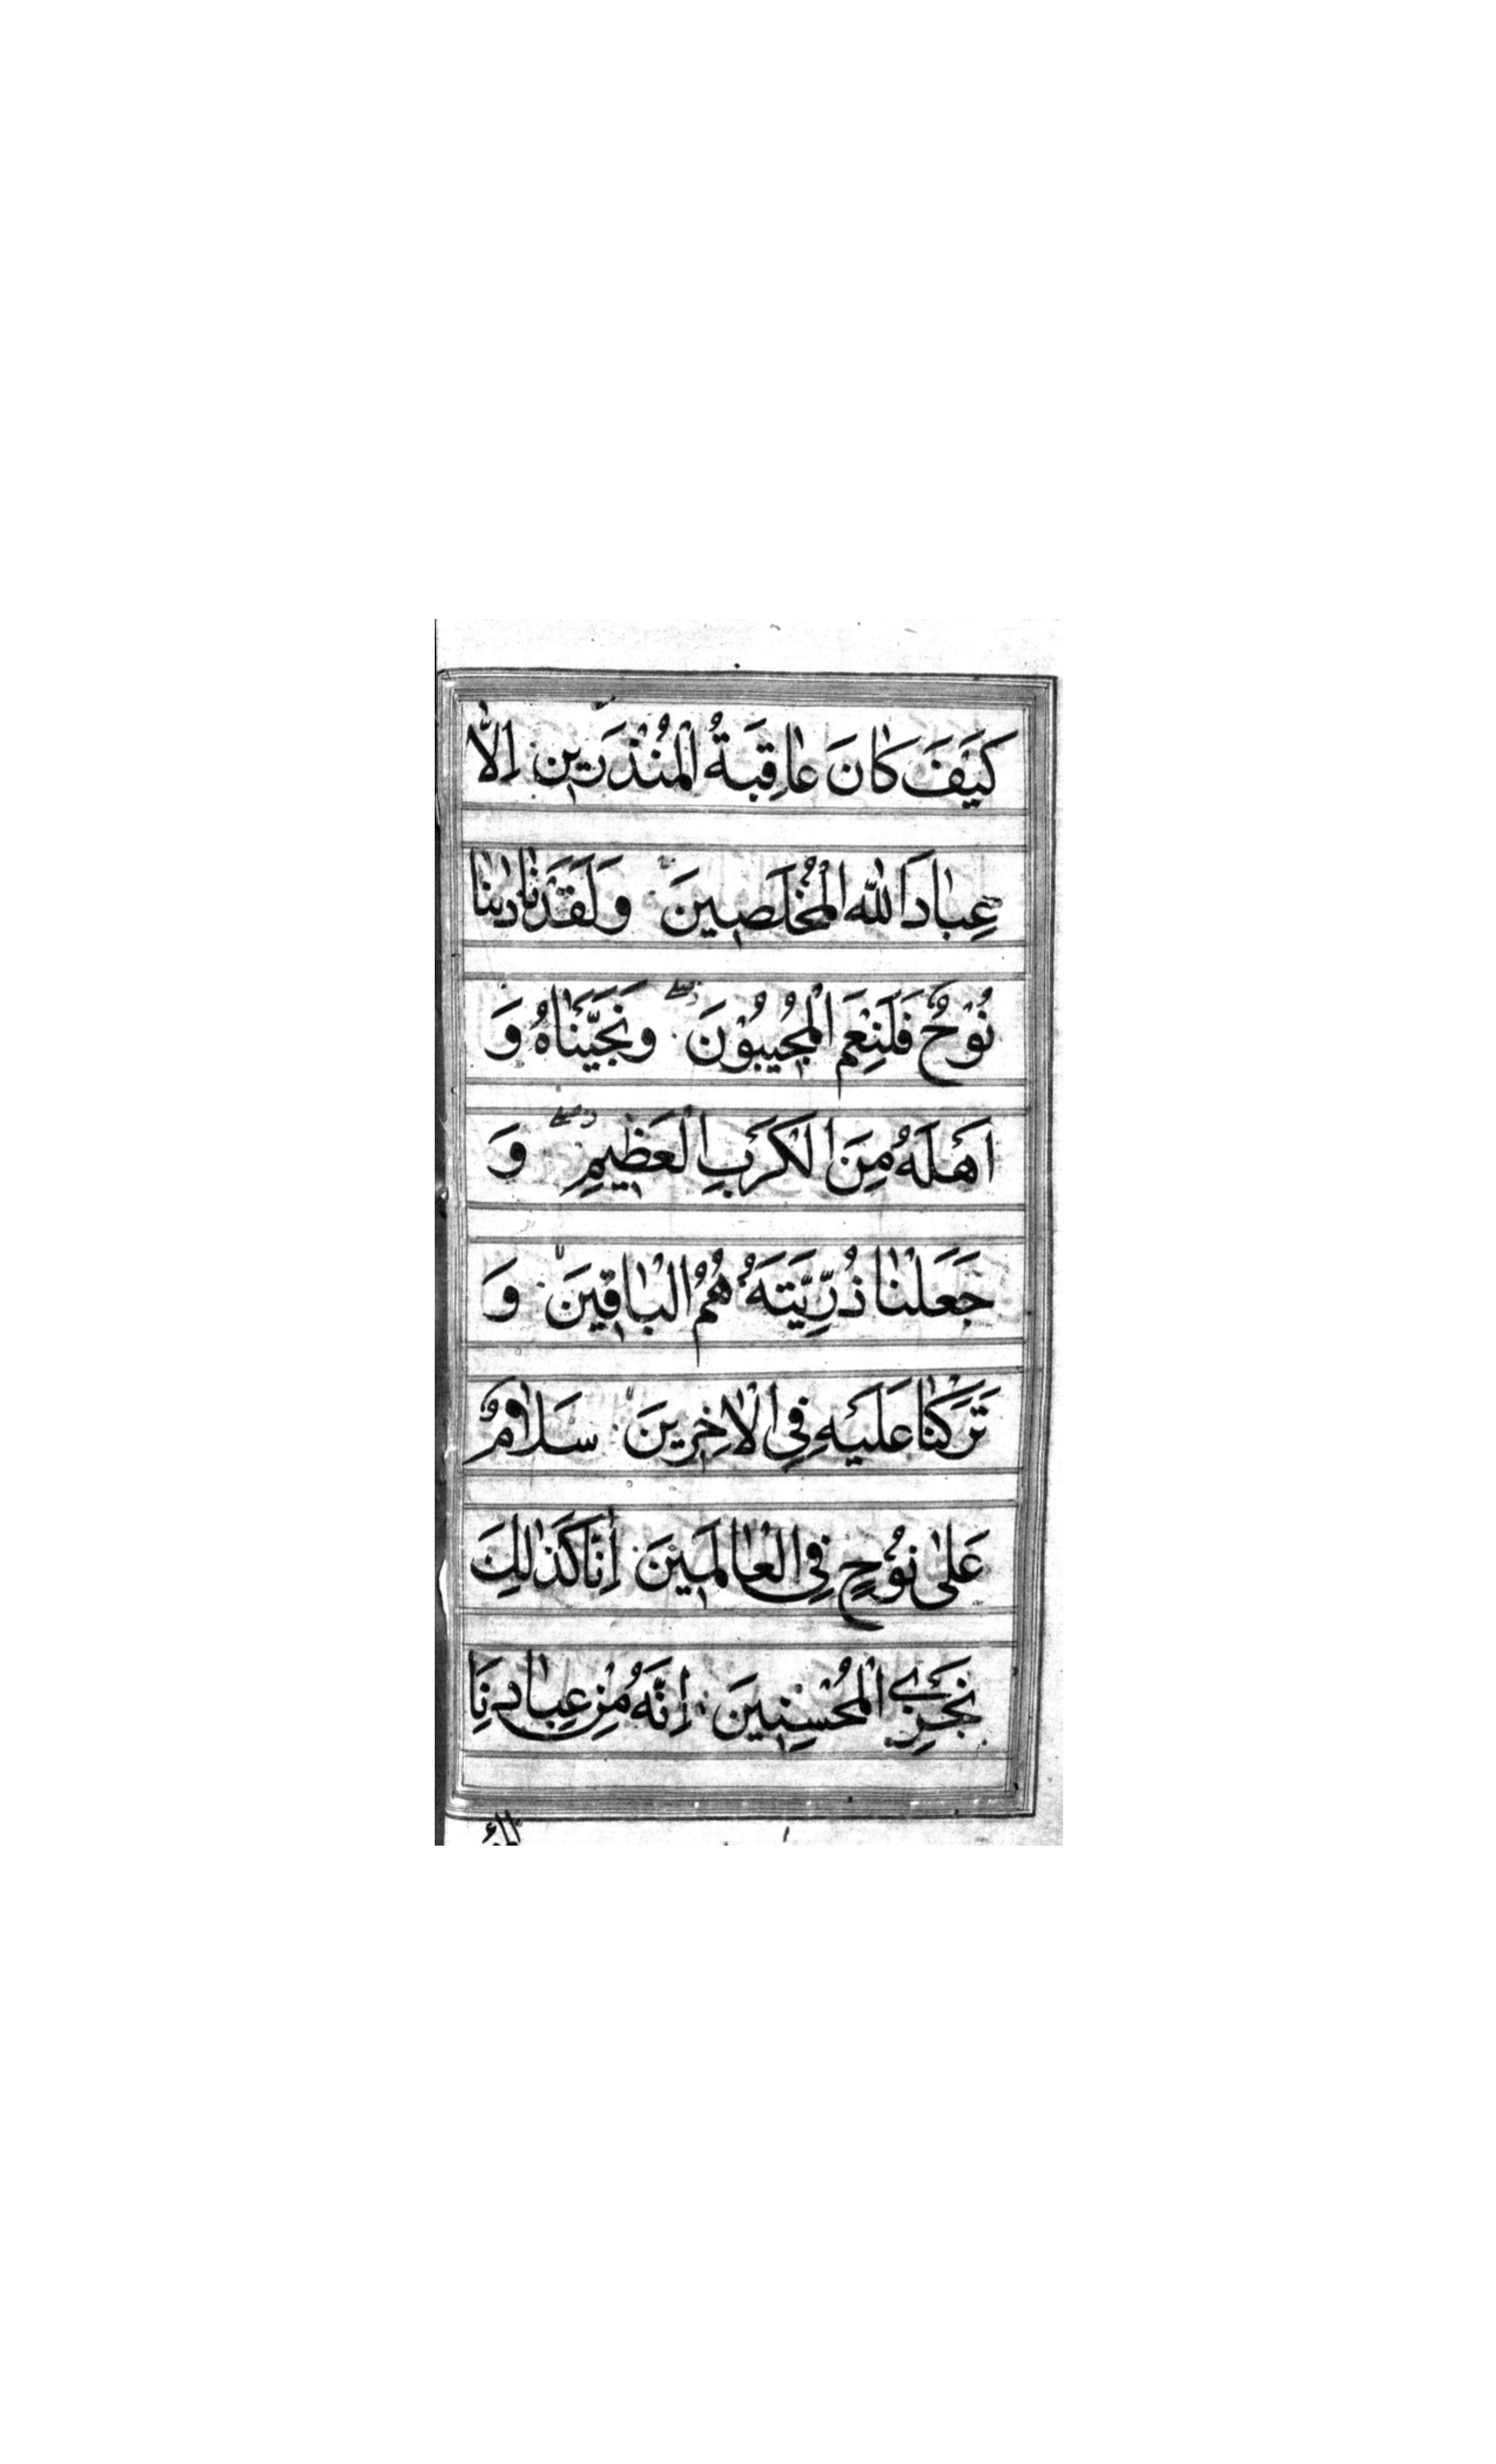 كَيْفَ كَانَ عَاقِبَةُ الْمُنْذَرِينَ اِلَّا
عِبَادَ اللّٰهِ الْمُخْلَصِينَ وَلَقَدْ نَادٰينَا
نُوْحٌ فَلَنِعْمَ الْمُجِيبُوْنَ وَنَجَّيْنَاهُ وَ
اَهْلَهُ مِنَ الْكَرْبِ الْعَظِيمِ وَ
جَعَلْنَا ذُرِّيَّتَهُ هُمُ الْبَاقِينَ وَ
تَرَكْنَا عَلَيْهِ فِي الْاٰخِرِينَ سَلَامٌ
عَلٰى نُوْحٍ فِي الْعَالَمِينَ اِنَّا كَذٰلِكَ
نَجْزِي الْمُحْسِنِينَ اِنَّهُ مِنْ عِبَادِنَا